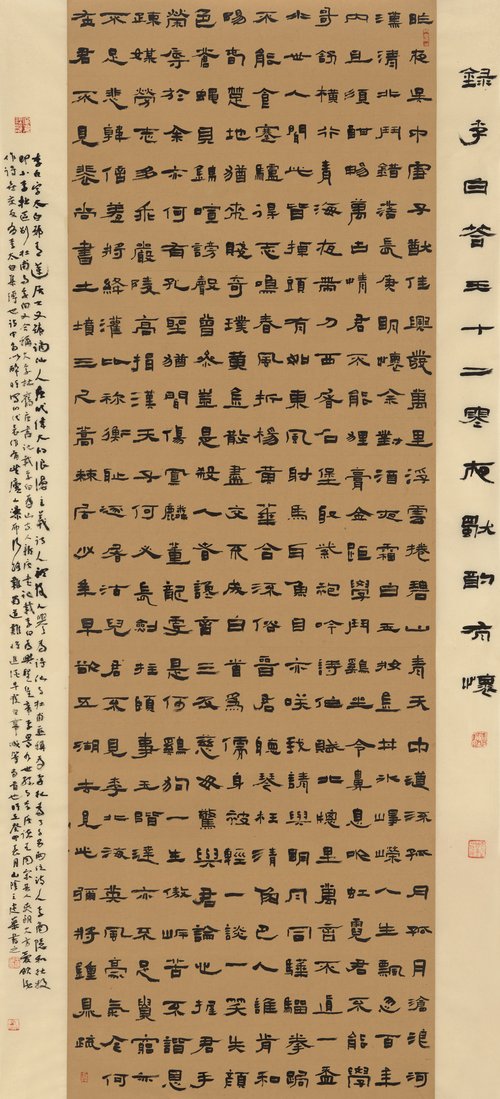 録李白答王十二寒夜獨酌有懷
昨夜吳中雪子猷佳興發萬里浮雲捲碧山青天中道流孤月孤月滄浪河
漢清北斗錯落長庚明懷余對酒夜霜白玉牀金井冰崢嶸人生飄忽百年
內且須酣暢萬古情君不能狸膏金距學鬥雞坐令鼻息吹虹霓君不能學
哥舒橫行青海夜帶刀西屠石堡取紫袍吟詩作賦北窗裏萬言不直一盃
水世人聞此皆掉頭有如東風射馬耳魚目亦咲我請與明月同驊騮拳跼
不能食蹇驢得志鳴春風折楊黃華合流俗晉君聽琴枉清角巴人誰肯和
陽春楚地猶來賤奇璞黃金散盡交不成白首為儒身被輕一談一笑失顏
色蒼蠅貝錦喧謗聲曾參豈是殺人者讒言三及慈母驚與君論心握君手
榮辱於余亦何有孔聖猶聞傷鳳麟董龍更是何雞狗一生傲岸苦不諧恩
疎媒勞志多乖嚴陵高揖漢天子何必長劍拄頤事玉階達亦不足貴窮亦
不足悲韓信羞將絳灌比禰衡恥逐屠沽兒君不見李北海英風豪氣今何
在君不見裴尚書土墳三尺蒿棘居少年早欲五湖去見此彌將鐘鼎疏
李白字太白號青蓮居士又號謫仙人唐代偉大的浪漫主義詩人被後人譽為詩仙與杜甫並稱為李杜為了與另兩位詩人李商隱和杜牧
即小李杜區別杜甫與李白又合稱大李杜